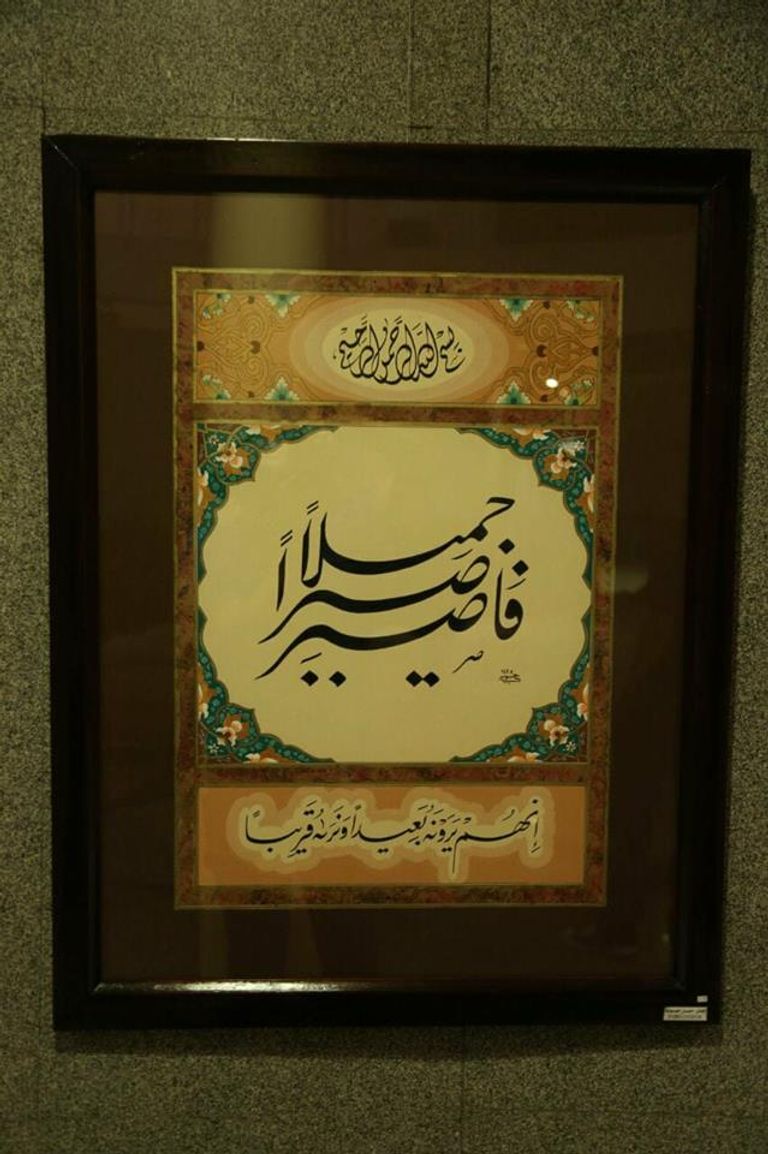 بسم الله الرحمن الرحيم
فَاصبِر صبراً جميلاً
إِنهُم يَرَونَهُ بَعيداً وَنَرىٰهُ قَريباً